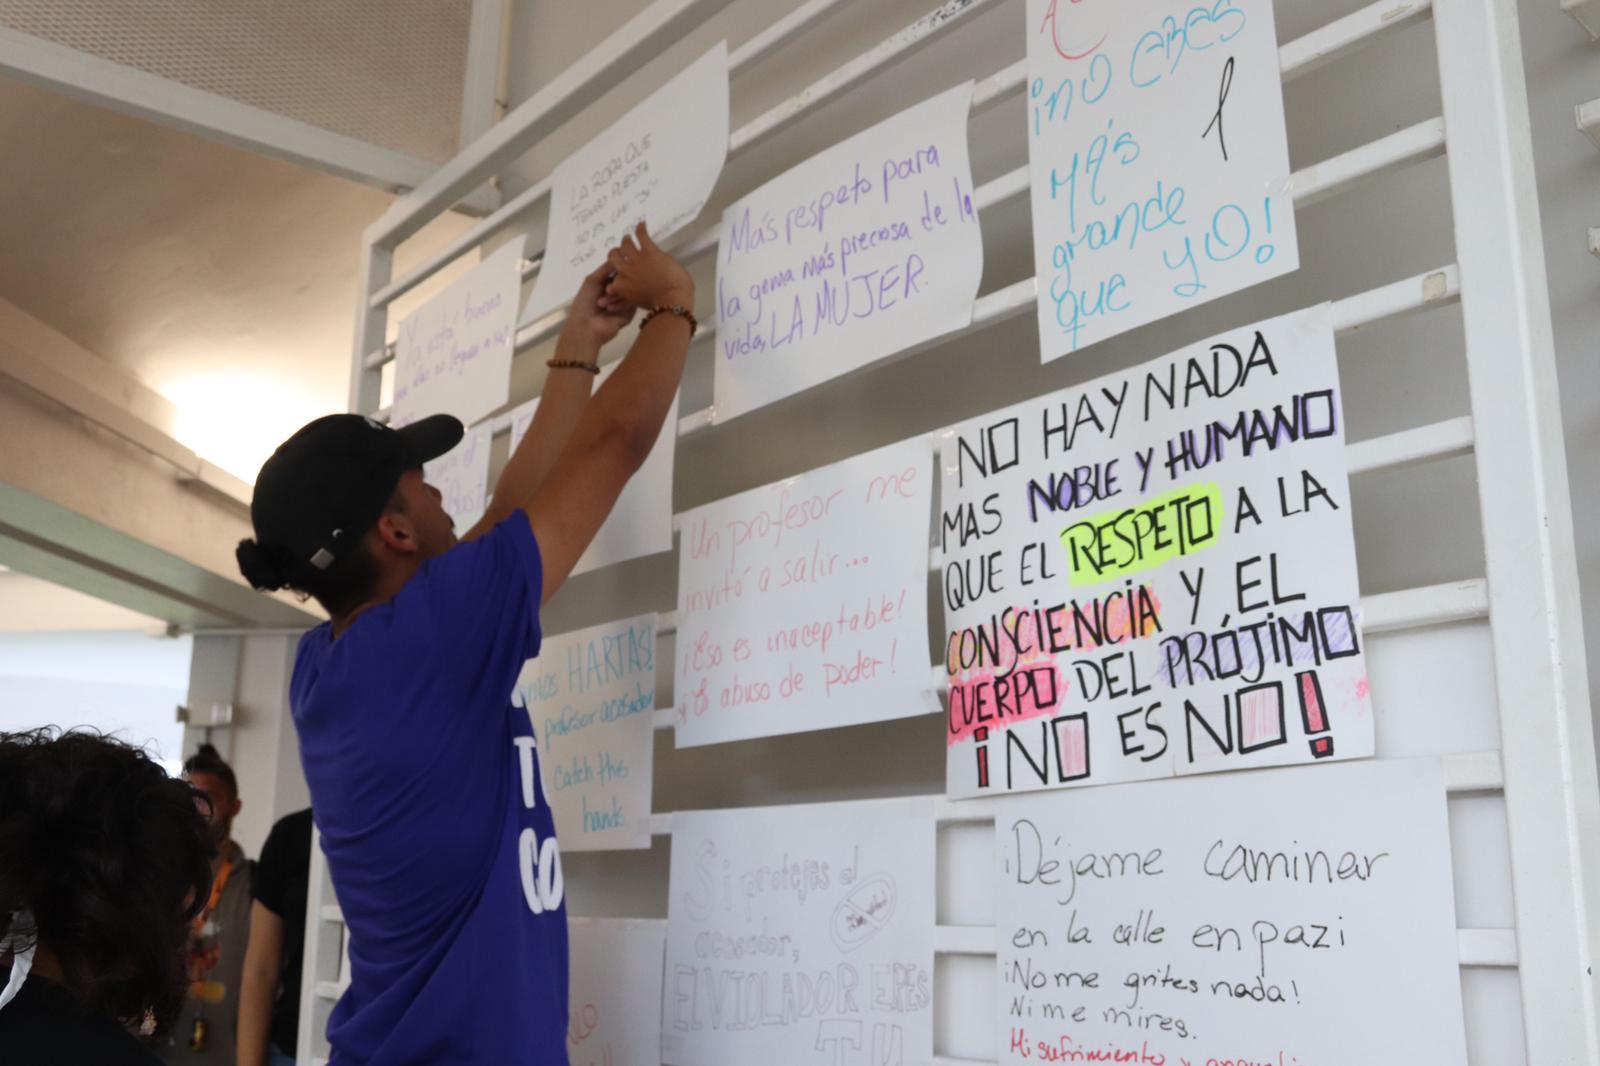 LA ROPA QUE
TENGO PUESTA
NO ES UN "SI"
Más respeto para
la gema más preciosa de la
vida, LA MUJER.
¡NO ERES
MÁS
grande
que yo!
Ya está bueno
NO HAY NADA
MAS NOBLE Y HUMANO
QUE EL RESPETO A LA
CONSCIENCIA Y EL
CUERPO DEL PRÓJIMO
¡NO ES NO!
Un profesor me
invitó a salir...
¡Eso es inaceptable!
abuso de poder!
HARTAS!
profesor acosador
catch this
hands
Si protejes al
acosador,
EL VIOLADOR ERES
TU
¡Déjame caminar
en la calle en paz¡
¡No me grites nada!
Ni me mires.
Mi sufrimiento y
T
CO